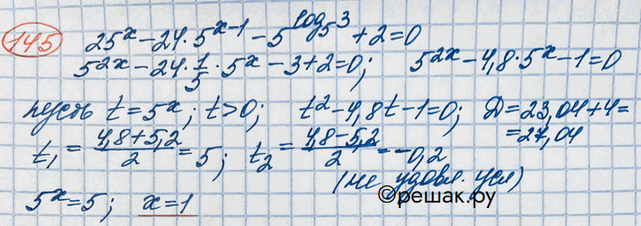 145 25^x - 24·5^(x-1) - 5^(log_5 3) + 2 = 0
5^(2x) - 24·1/5·5^x - 3 + 2 = 0; 5^(2x) - 4,8·5^x - 1 = 0
пусть t = 5^x; t > 0; t² - 4,8t - 1 = 0; Д = 23,04 + 4 =
= 27,04
t₁ = (4,8 + 5,2)/2 = 5; t₂ = (4,8 - 5,2)/2 = -0,2
(не удовл. усл)
©решак.ру
5^x = 5; x = 1